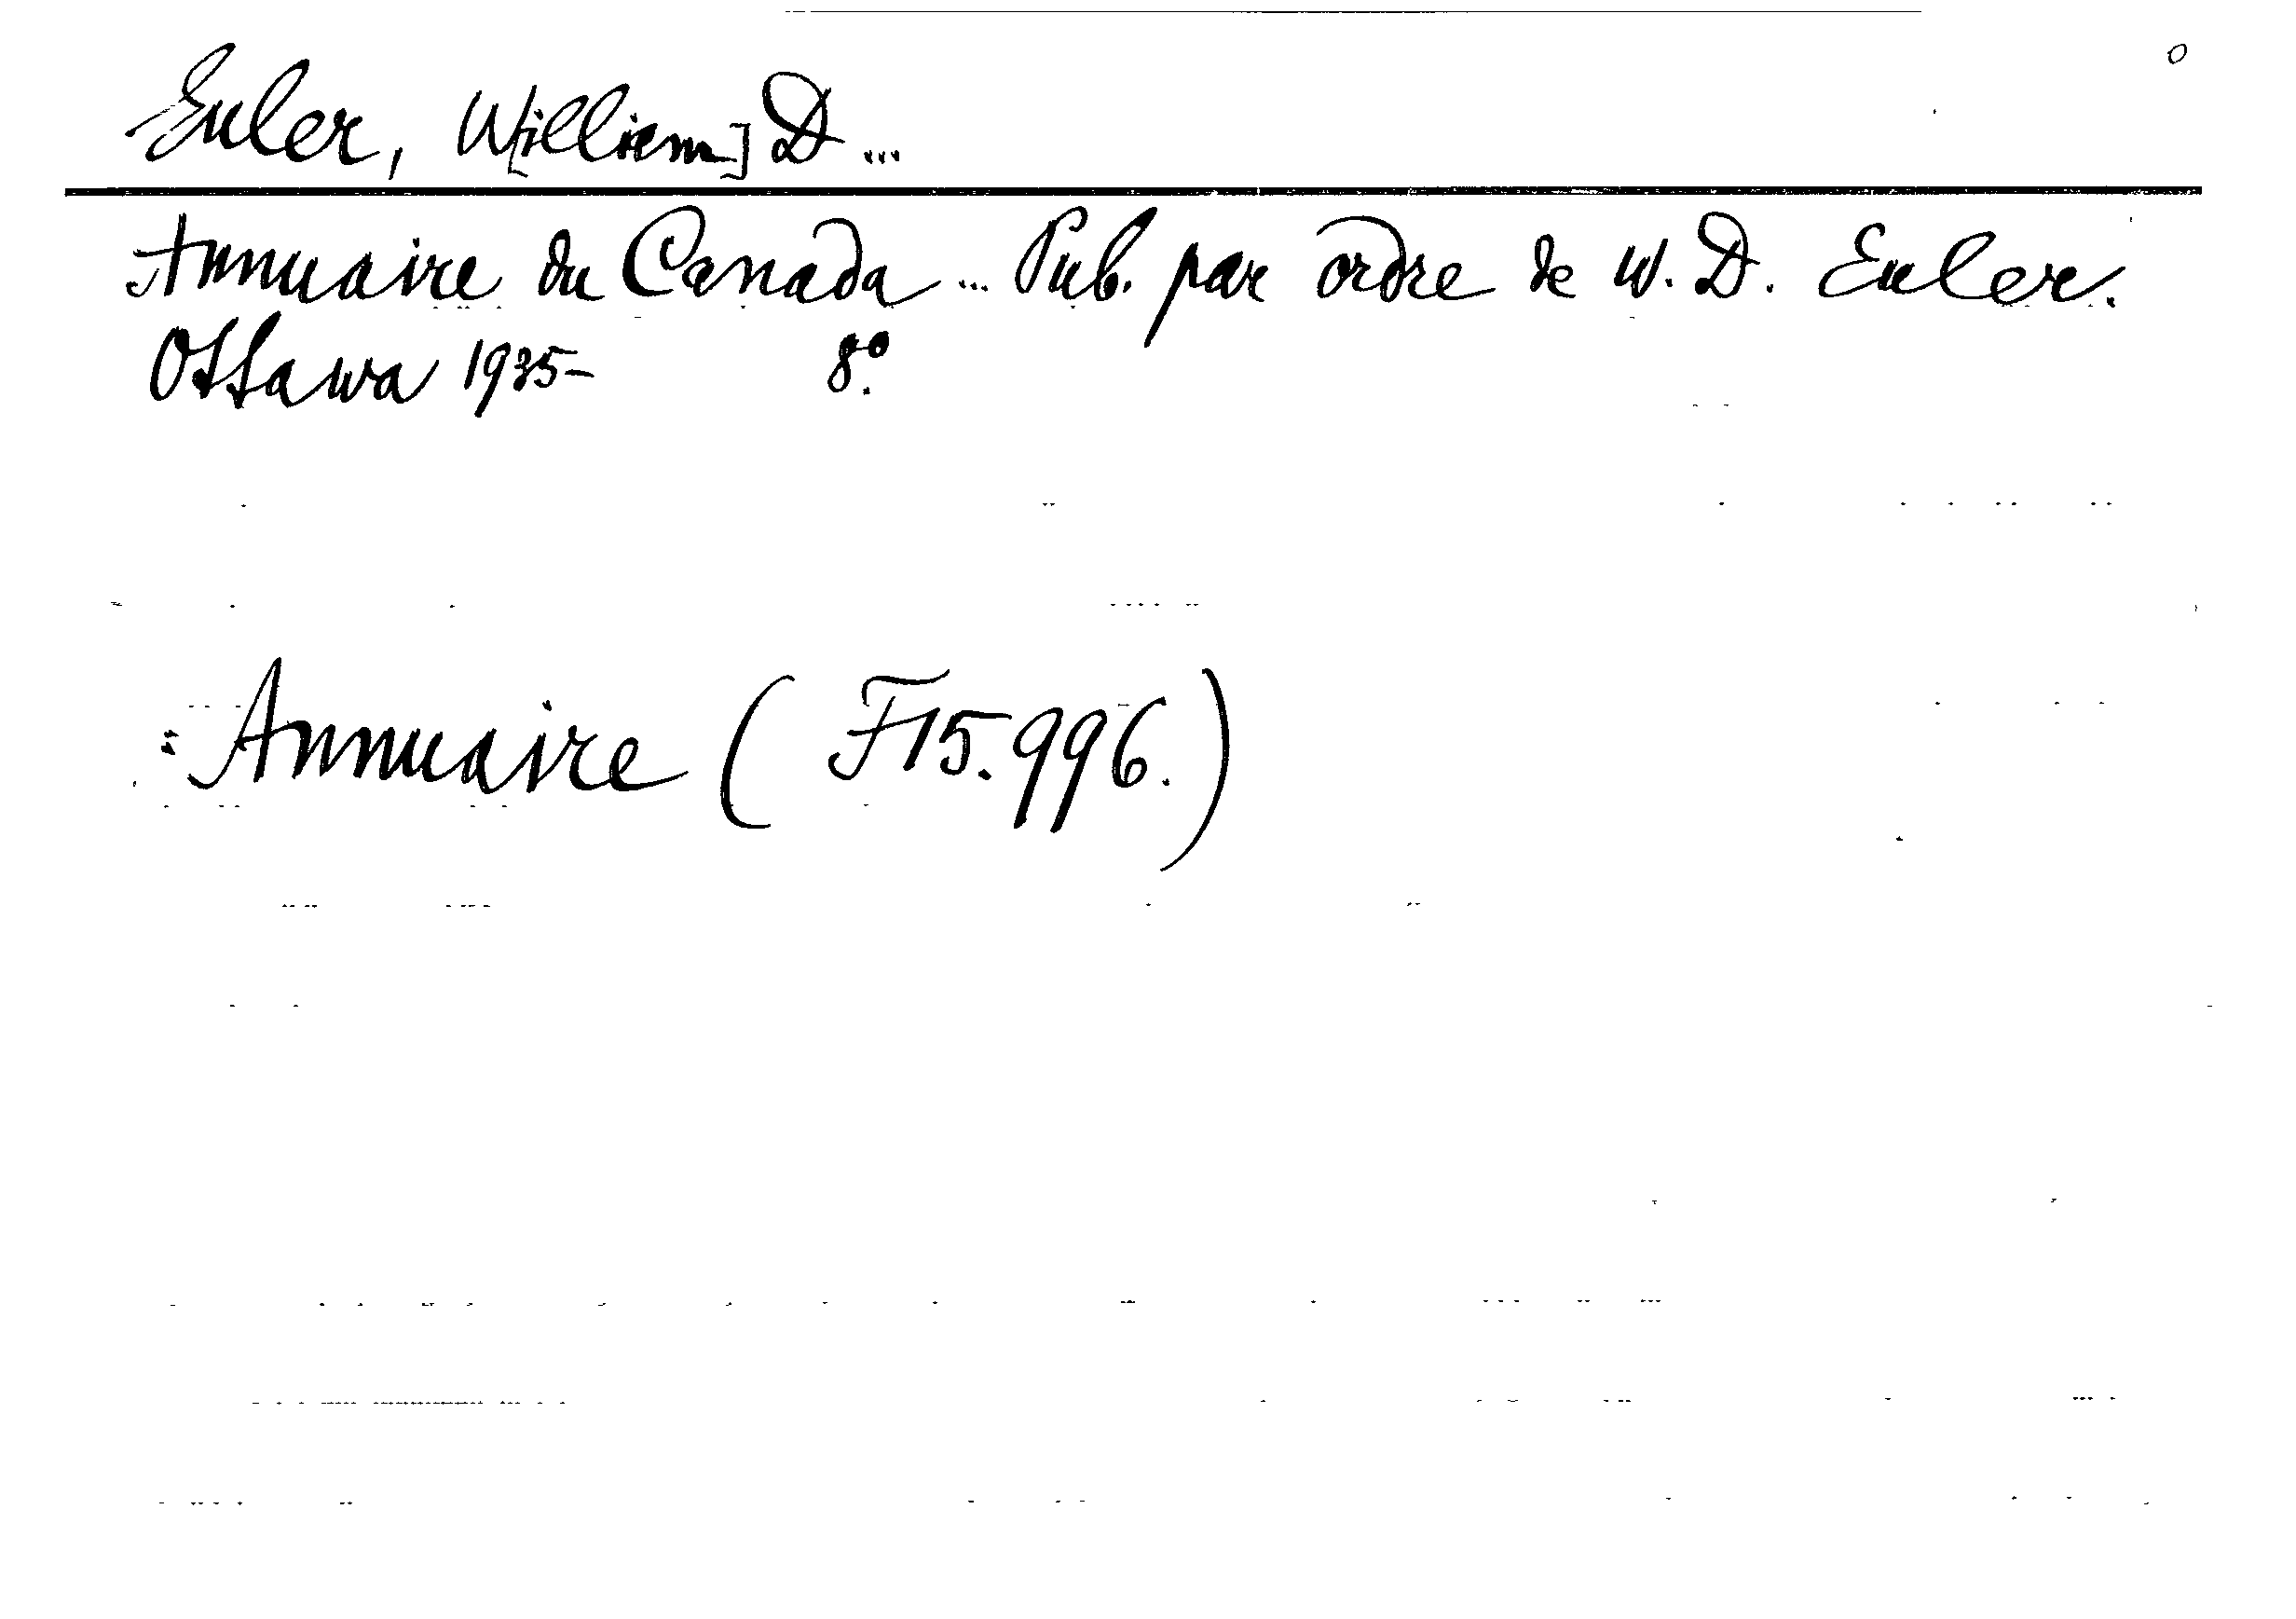 Euler, W[illiam] D ...
Annuaire du Canada ... Pub. par ordre de W. D. Euler.
Ottawa 1935- 8°.
: Annuaire ( F15.996.)